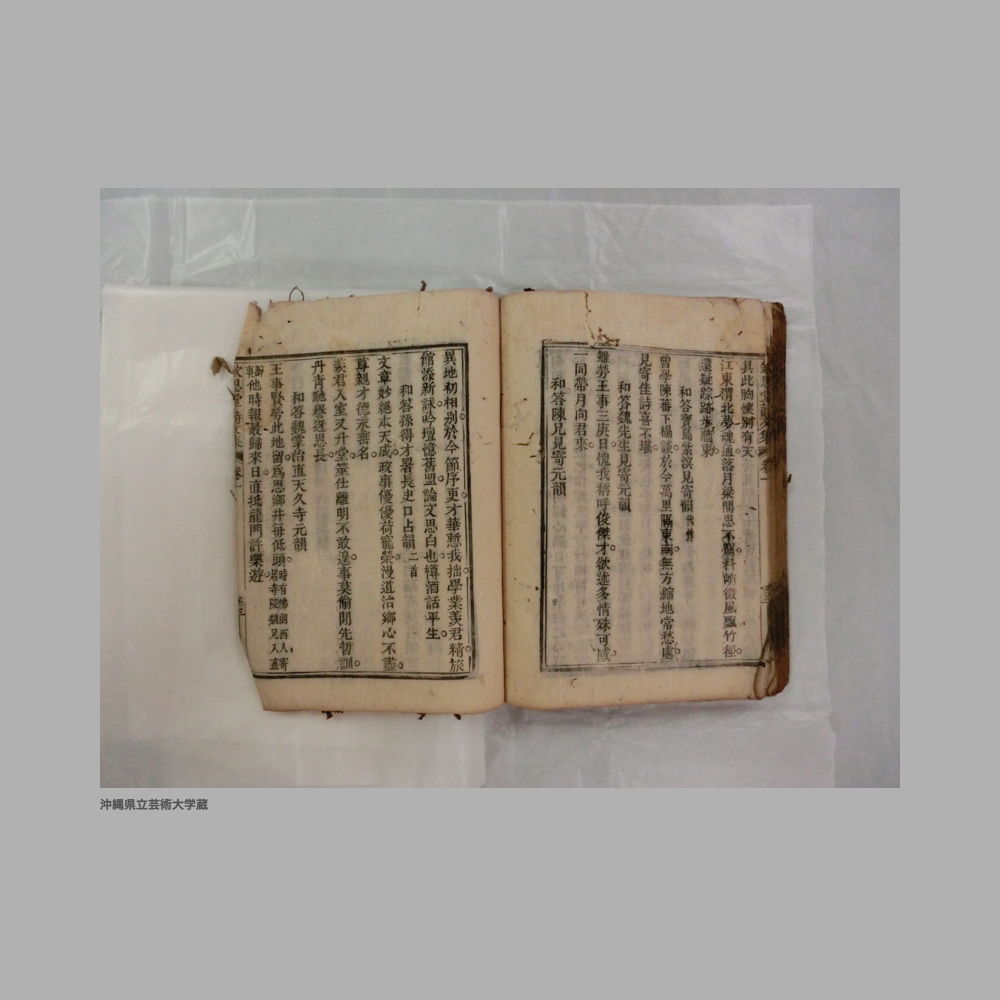 具此胸懷別有天
江東渭北夢魂通落月梁間思不窮料峭微風飄竹徑
還疑踪跡步牆東
和答寶島紫溟見寄韻 代作
曾學陳蕃下榻談於今萬里隔東南無方縮地常愁處
見寄佳詩喜不堪
和答魏先生見寄元韻
雖勞王事三庚日愧我稱呼俊傑才欲述多情殊可感
一同帶月向君來
和答陳兄見寄元韻
異地初相別於今節序更才華慙我拙學業羨君精旅
館添新詠吟壇憶舊盟論文思白也樽酒話平生
和答孫得才署長史口占韻二首
文章妙絕本天成政事優優荷寵榮漫道治鄉心不盡
尊親才德永垂名
羨君入室又升堂筮仕離明不敢遑事莫偷閒先哲訓
丹青馳譽邇恩長
和答魏掌治直天久寺元韻
王事賢勞此地留爲思鄉井每低頭
他時報最歸來日直抵龍門許樂遊
沖縄県立芸術大学蔵